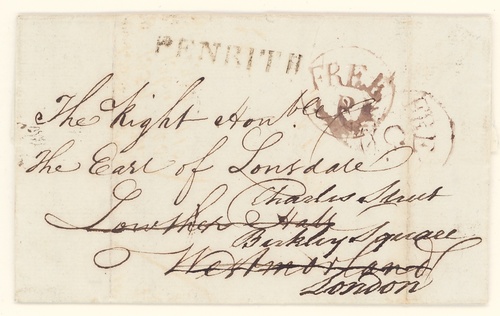 PENRITH
FREE
FRE
The Right Hon.ble
The Earl of Lonsdale
Charles Street
Lowther Hall
Berkley Square
Westmorland
London